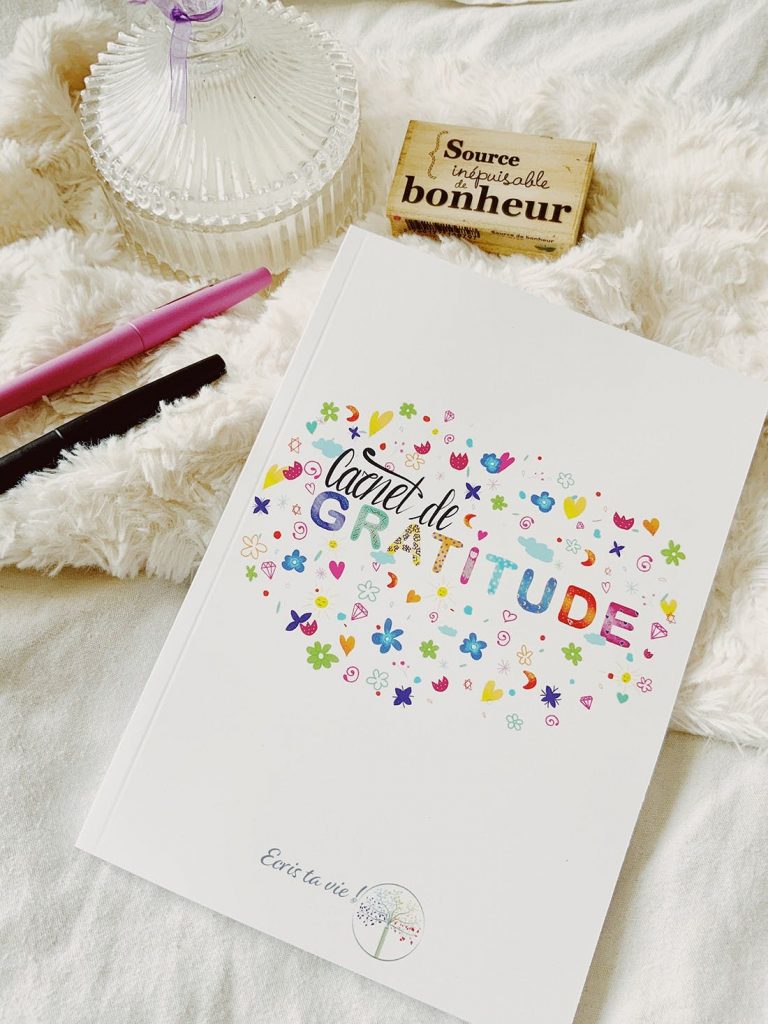 { Source
inépuisable
de
bonheur
Source de bonheur
Carnet de
GRATiTUDE
Ecris ta vie !